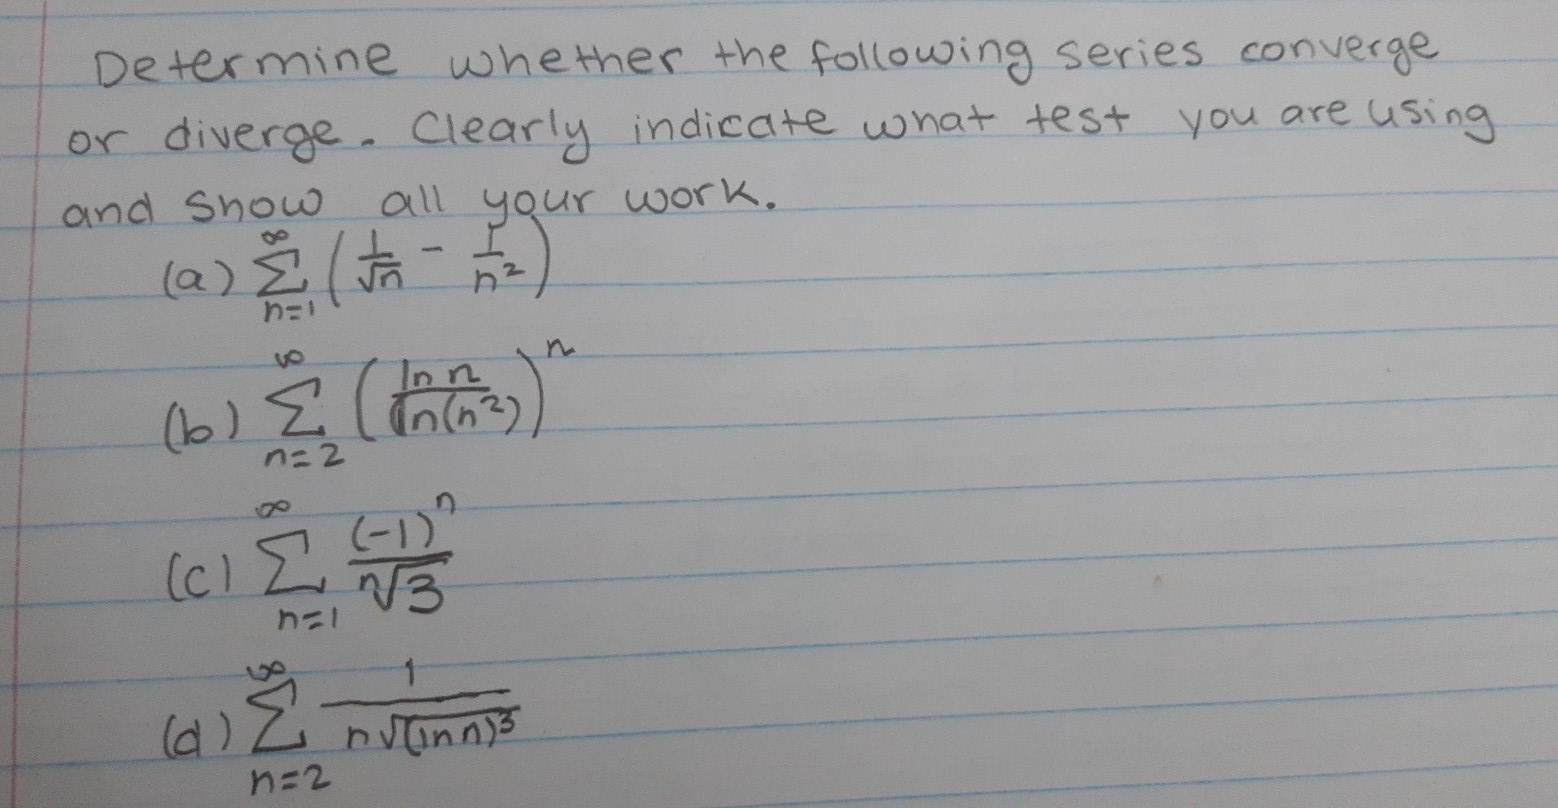 Determine whether the following series converge
or diverge. Clearly indicate what test you are using
and show all your work.
(a) ∑_{n=1}^{∞} (1/√n - 1/n²)
(b) ∑_{n=2}^{∞} (ln n / ln(n²))^n
(c) ∑_{n=1}^{∞} (-1)^n / ⁿ√3
(d) ∑_{n=2}^{∞} 1 / (n√((ln n)³))